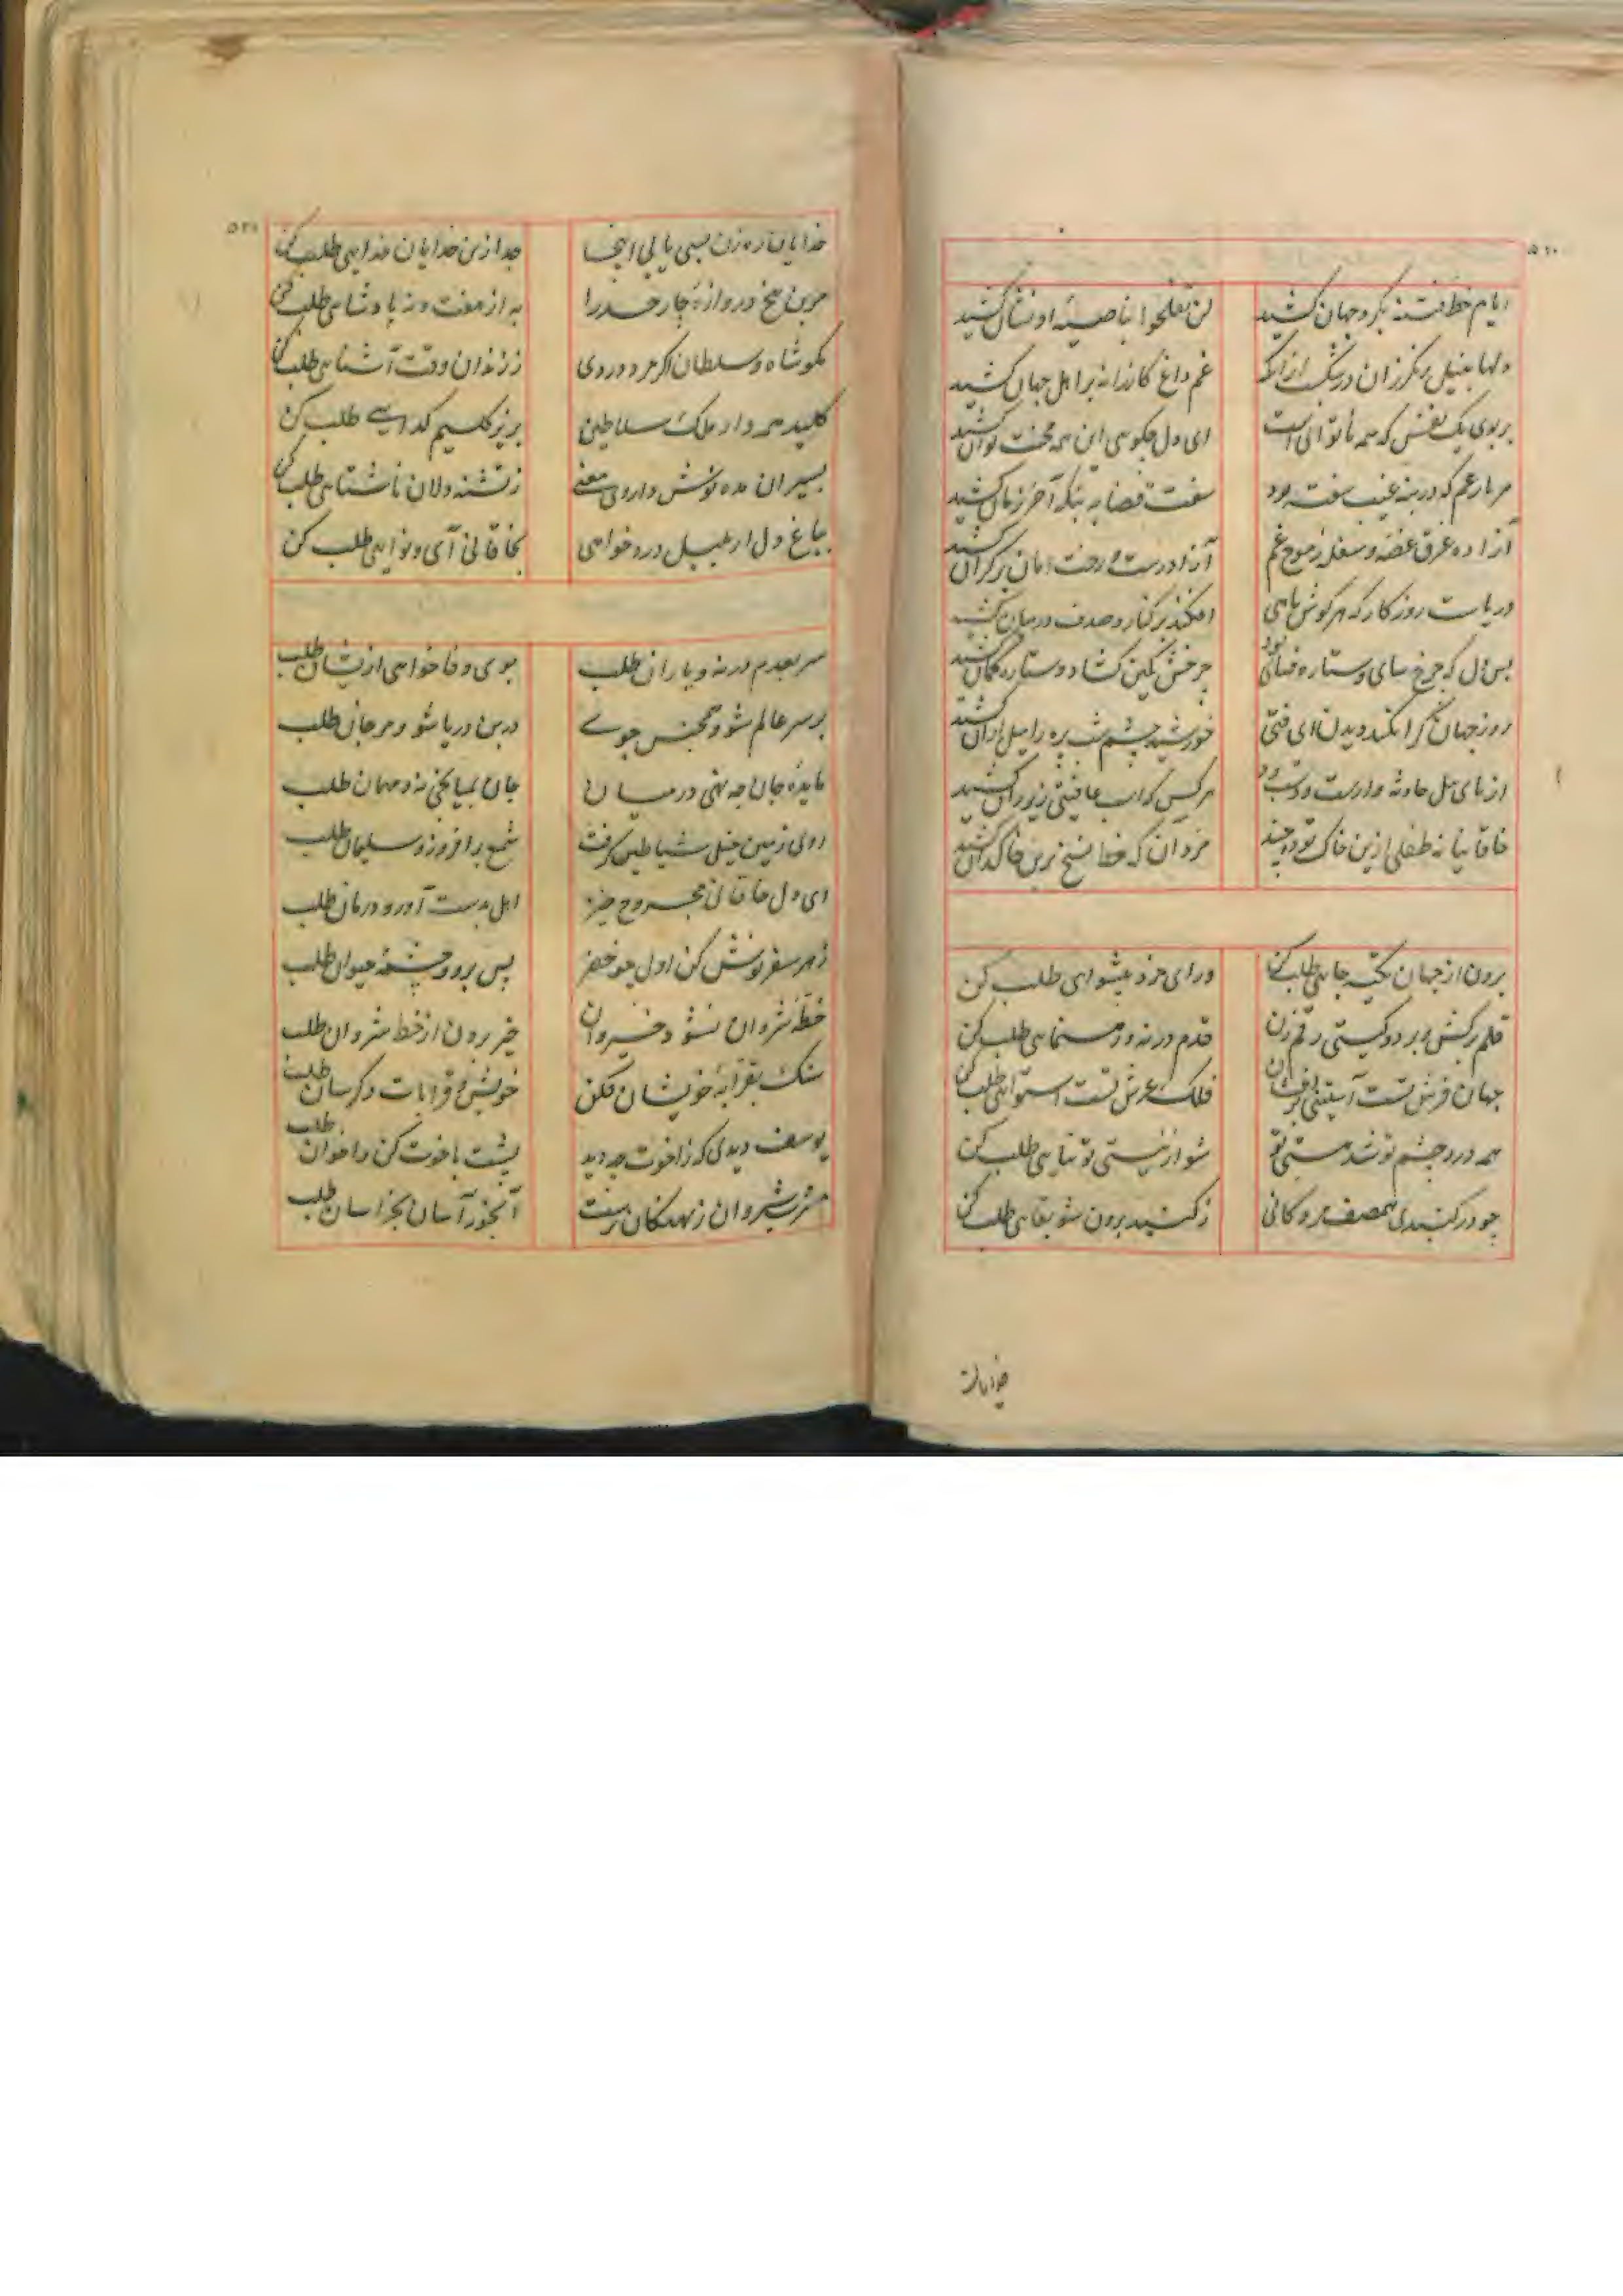 ایام خط فتنه بگرد جهان کشید
لن تفلحوا بناصیهٔ او نشان کشید
دلها بنیل رنگرزان در
غم داغ کازرانه بر اهل جهان کشید
بر بوی یک نفس که همه ناتوانی است
ای دل چگوهی این همه محنت توان کشید
هر بار غم که در بنهٔ غیب سفته بود
سفت قضا به بنگه آخر زمان کشید
آزاده غرق غصه و سفله ز موج غم
آزاد رست و رخت امان بر کران کشید
دریاست روزگار که هر گوش ماهی
افکند بر کنار و صدف در میان کشید
بس دل که چرخ سای و ستاره فسای بود
چرخش کمین کشاد و ستاره کمان کشید
روز جهان کرا نکند دیدن ای فتی
خورشید چشم شب پره را میل از آن کشید
هر کس که اسب عافیتی زیر ران کشید
خاقانیا نه طفلی ازین خاک توده چند
مردان که خط نسخ برین خاکدان کشید
برون از جهان تکیه جایی طلب کن
ورای خرد پیشوای طلب کن
قلم برکش و بر دو گیتی رقم زن
قدم درنه و رهنمایی طلب کن
جهان فرش تست آستینی برافشان
فلک عرش تست استوایی طلب کن
همه درد چشم تو شد هستی تو
شو از نیستی توتیایی طلب کن
چو در گنبدی همصف مردگانی
ز گنبد برون شو بقایی طلب کن
خدایان
خدایان ره‌زن بسی یابی اینجا
جدا زین خدایان خدایی طلب کن
مرین پنج دروازهٔ چار حد را
به از هفت و نه پادشاهی طلب کن
مگو شاه و سلطان اگر مرد دردی
ز رندان وقت آشنایی طلب کن
کلید همه دار ملک سلاطین
بزیر گلیم گدایی طلب کن
بسیران مده نوش داروی معنی
ز تشنه دلان ناشتایی طلب کن
بباغ دل ار بلبل درد خواهی
بخاقانی آی و نوایی طلب کن
سر بعدم درنه و یاران طلب
بوی وفا خواهی ازیشان طلب
بر سر عالم شو و همجنس جوی
در بن دریا شو و مرجان طلب
مایدهٔ جان چه نهی در میان
جان بمیانجی نه و مهمان طلب
روی زمین خیل شیاطین گرفت
شمع برافروز و سلیمان طلب
ای دل خاقانی مجروح خیز
اهل بدست آور و درمان طلب
زهر سفر نوش کن اول چو خضر
پس برو و چشمهٔ حیوان طلب
خطهٔ شروان نشود خیروان
خیر برون از خط شروان طلب
سنگ بقرابهٔ خویشان فکن
خویش و قرابات دگرسان طلب
یوسف دیدی که ز اخوت چه دید
پشت باخوت کن و اخوان طلب
مشرب شروان ز نهنگان پرست
آبخور آسان بخراسان طلب